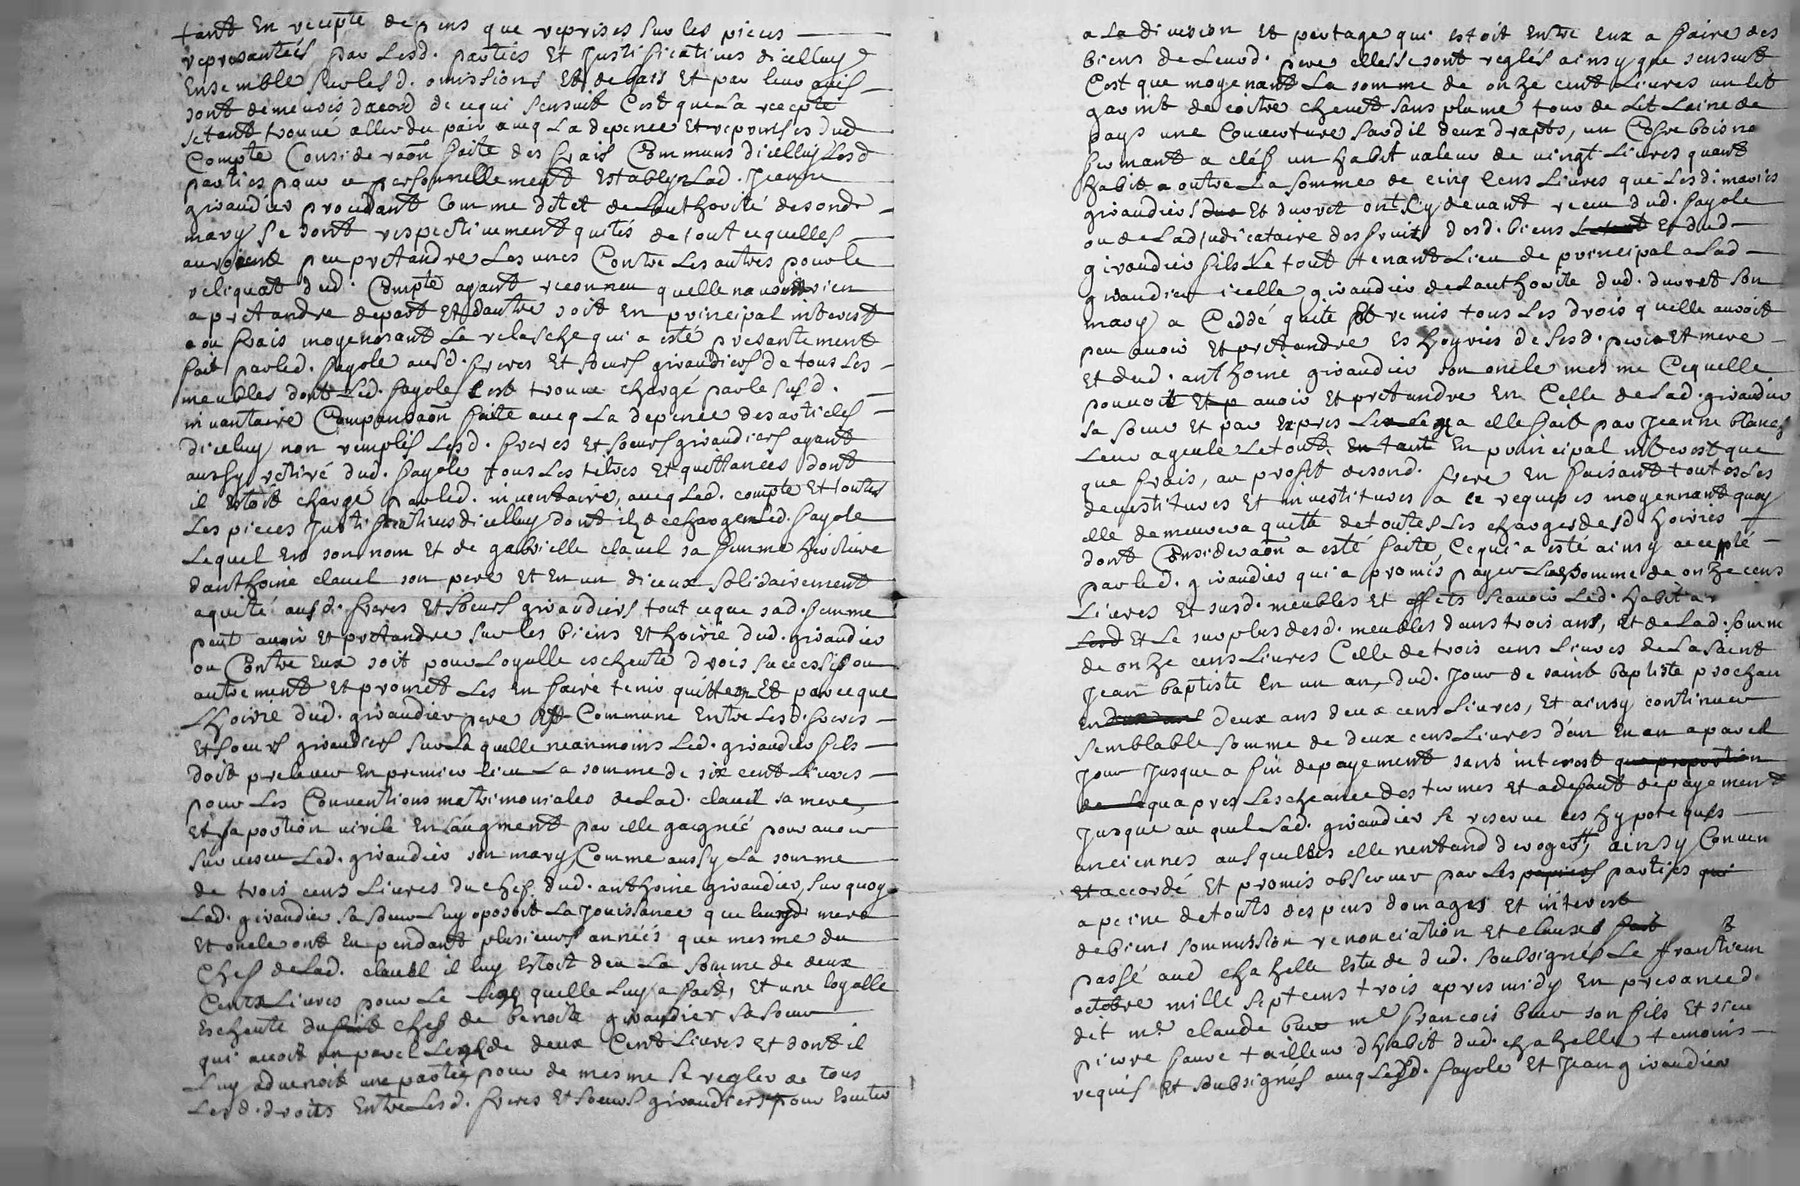 tant en recepte depens que reprises sur les pieces
representées par lesd. parties et justificatives dicelluy
Ensemble sur lesd. omissions et debats et par leur avis
sont demeurés dacord de ce qui sensuit Cest que la recepte
setant trouvé aller du pair avec la depence et reprinses dud
Compte Consideraon faite des frais Communs dicelluy lesd
parties pour ce personnellement establyes lad. Jeanne
giraudier procedant Comme dit et de lauthorité de sond.
mary se sont respectivement quités de tout ce quelles
auroient peu pretandre les unes Contre les autres pour le
reliquat dud. Compte ayant reconneu quelle navoint rien
a pretandre de part et dautre soit en principal interest
ou frais moyenant la relasche qui a esté presantement
fait par led. fayole ausd. freres et soeurs giraudiers de tous les
meubles dont led. fayole sest trouvé chargé par le susd.
invantaire Compansaon faite avec la depence des articles
dicelluy non remplis lesd. freres et soeurs giraudiers ayant
aussy retiré dud. fayole tous les titres et quittances dont
il estoit chargé par led. inventaire, avec led. compte et toutes
les pieces justificatives dicelluy dont ilz dechargent led. fayole
lequel en son nom et de gabrielle clauel sa femme heritiere
danthoine clauel son pere et en un diceux solidairement
a quité ausd. freres et soeurs giraudiers tout ce que sad. femme
peut avoir et pretandre sur les biens et hoirie dud. giraudier
ou Contre eux soit pour loyalle escheute drois successif ou
autrement et promet les en faire tenir quittes Et parce que
lhoirie dud. giraudier pere est Commune entre lesd. freres
et soeurs giraudiers sur la quelle neanmoins led. giraudier fils
doit prelever en premier lieu la somme de six cent livres
pour les Conventions matrimoniales de lad. clauel sa mere,
et sa portion virile en laugment par elle gaigné pour avoir
survescu led. giraudier son mary Comme aussy la somme
de trois cens livres du chef dud. anthoine giraudier, sur quoy
lad. giraudier sa soeur luy oposoit la jouissance que leursd. mere
et oncle ont eu pendant plusieurs années que mesme du
Chef de lad. clauel il luy estoit deu la somme de deux
Cents livres pour le legs quelle luy a fait, et une loyalle
escheute du chef de benoite giraudier sa soeur
qui avoit un pareil legs de deux Cent livres et dont il
luy advenoit une partie pour de mesme se regler de tous
lesd. droits entre lesd. freres et soeurs giraudiers pour esviter
a la division et partage qui estoit entre eux a faire des
biens de leurd. pere elles se sont reglés ainsy que sensuit
Cest que moyenant la somme de onze cent livres un lit
garnit de coitre chevet sans plume tour de lit laine de
pays une Couverture sardil deux drapts, un Cofre bois no
fermant a clef un habit valeur de vingt livres quant
habit a outre la somme de cinq cens livres que lesd. mariés
giraudiers et duvret ont cy devant receu dud. fayole
ou de ladjudicataire des fruits desd. biens et dud.
giraudier fils le tout tenant lieu de principal a lad
giraudier icelle giraudier de lauthorité dud. duvret son
mary a Ceddé quité et remis tous les drois quelle auroit
peu avoir et pretandre es hoyries de sesd. pere et mere
et dud. anthoine giraudier son oncle mesme Ce quelle
pouvoit avoir et pretandre en Celle de lad. giraudier
sa soeur et par expres le legs a elle fait par jeanne blanc
leur ayeule le tout en principal interest que
que frais, au profit de sond. frere en faisant toutes les
devestitures et investitures a ce requises moyennant quoy
elle demeurera quitte de toutes les charges desd. hoiries
dont Consideraon a esté faite, Ce qui a esté ainsy accepté
par led. giraudier qui a promis payer lad. somme de onze cens
livres et susd. meubles et effets scavoir led. habit
et le surplus desd. meubles dans trois ans, et de lad. somme
de onze cens livres Celle de trois cens livres de la saint
jean baptiste en un an, dud. jour de saint baptiste prochain
en deux ans deux cens livres, et ainsy continuer
semblable somme de deux cens livres dan en an a pareil
jour jusque a fin de payement sans interest
qua pres lescheance des termes et a defaut de payement
jusque au quel lad. giraudier se reserve ces hypoteques
anciennes ausquelles elle nentand deroger, ainsy Conven
et accordé et promis observer par les parties
a peine de touts despens domages et interest
de biens sommission renonciation et clauses
passé aud chazelle estude dud. soubsigné le trantieme
octobre mille sept cens trois apres midy en presance d.
dit me claude me francois son fils et sieur
pierre faure tailleur dhabit dud. chazelle temoins
requis et soubsignés avec lesd. fayole et jean giraudier